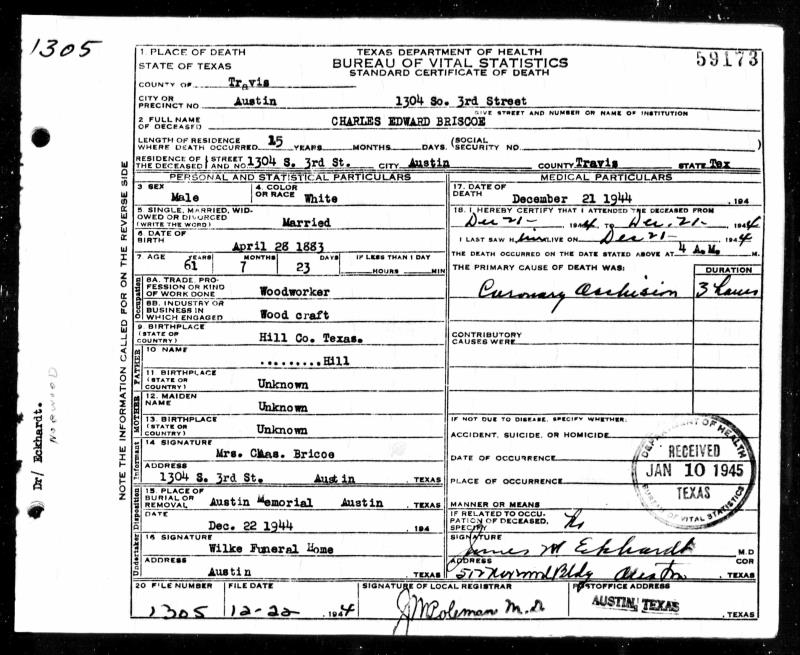 1305
TEXAS DEPARTMENT OF HEALTH
BUREAU OF VITAL STATISTICS
STANDARD CERTIFICATE OF DEATH
59173
1 PLACE OF DEATH
STATE OF TEXAS
COUNTY OF Travis
CITY OR
PRECINCT NO Austin 1304 So. 3rd Street
GIVE STREET AND NUMBER OR NAME OF INSTITUTION
2 FULL NAME
OF DECEASED CHARLES EDWARD BRISCOE
LENGTH OF RESIDENCE
WHERE DEATH OCCURRED 15 YEARS MONTHS DAYS. (SOCIAL
(SECURITY NO. )
RESIDENCE OF ( STREET
THE DECEASED ( AND NO. 1304 S. 3rd St. CITY Austin COUNTY Travis STATE Tex
PERSONAL AND STATISTICAL PARTICULARS
3 SEX
Male
4. COLOR
OR RACE White
5 SINGLE, MARRIED, WID-
OWED OR DIVORCED
(WRITE THE WORD) Married
6 DATE OF
BIRTH April 28 1883
7 AGE YEARS MONTHS DAYS IF LESS THAN 1 DAY
61 7 23 HOURS MIN
Occupation
8A. TRADE, PRO-
FESSION OR KIND
OF WORK DONE Woodworker
8B. INDUSTRY OR
BUSINESS IN
WHICH ENGAGED Wood craft
9 BIRTHPLACE
(STATE OR
COUNTRY) Hill Co. Texas.
FATHER
10 NAME
.........Hill
11 BIRTHPLACE
(STATE OR
COUNTRY) Unknown
MOTHER
12. MAIDEN
NAME Unknown
13. BIRTHPLACE
(STATE OR
COUNTRY) Unknown
Informant
14 SIGNATURE
Mrs. Chas. Bricoe
ADDRESS
1304 S. 3rd St. Austin , TEXAS
Disposition
15. PLACE OF
BURIAL OR
REMOVAL Austin Memorial Austin , TEXAS
DATE
Dec. 22 1944 , 194
Undertaker
16 SIGNATURE
Wilke Funeral Home
ADDRESS
Austin , TEXAS
MEDICAL PARTICULARS
17. DATE OF
DEATH
December 21 1944 , 194
18. I HEREBY CERTIFY THAT I ATTENDED THE DECEASED FROM
Dec 21- 1944 TO Dec. 21- 1944
I LAST SAW H im ALIVE ON Dec 21- 1944
THE DEATH OCCURRED ON THE DATE STATED ABOVE AT 4 A.M. M.
THE PRIMARY CAUSE OF DEATH WAS:
DURATION
Coronary Occlusion 3 hours
CONTRIBUTORY
CAUSES WERE
IF NOT DUE TO DISEASE, SPECIFY WHETHER:
ACCIDENT, SUICIDE, OR HOMICIDE
DATE OF OCCURRENCE
PLACE OF OCCURRENCE
MANNER OR MEANS
IF RELATED TO OCCU-
PATION OF DECEASED,
SPECIFY No
SIGNATURE
James M Eckhardt M.D
ADDRESS COR
512 Norwood Bldg Austin , TEXAS
DEPARTMENT OF HEALTH
RECEIVED
JAN 10 1945
TEXAS
BUREAU OF VITAL STATISTICS
20 FILE NUMBER FILE DATE SIGNATURE OF LOCAL REGISTRAR POSTOFFICE ADDRESS
1305 12-22 1944 J M Coleman M.D. AUSTIN, TEXAS , TEXAS
NOTE THE INFORMATION CALLED FOR ON THE REVERSE SIDE
Dr/ Eckhardt.
NORWOOD